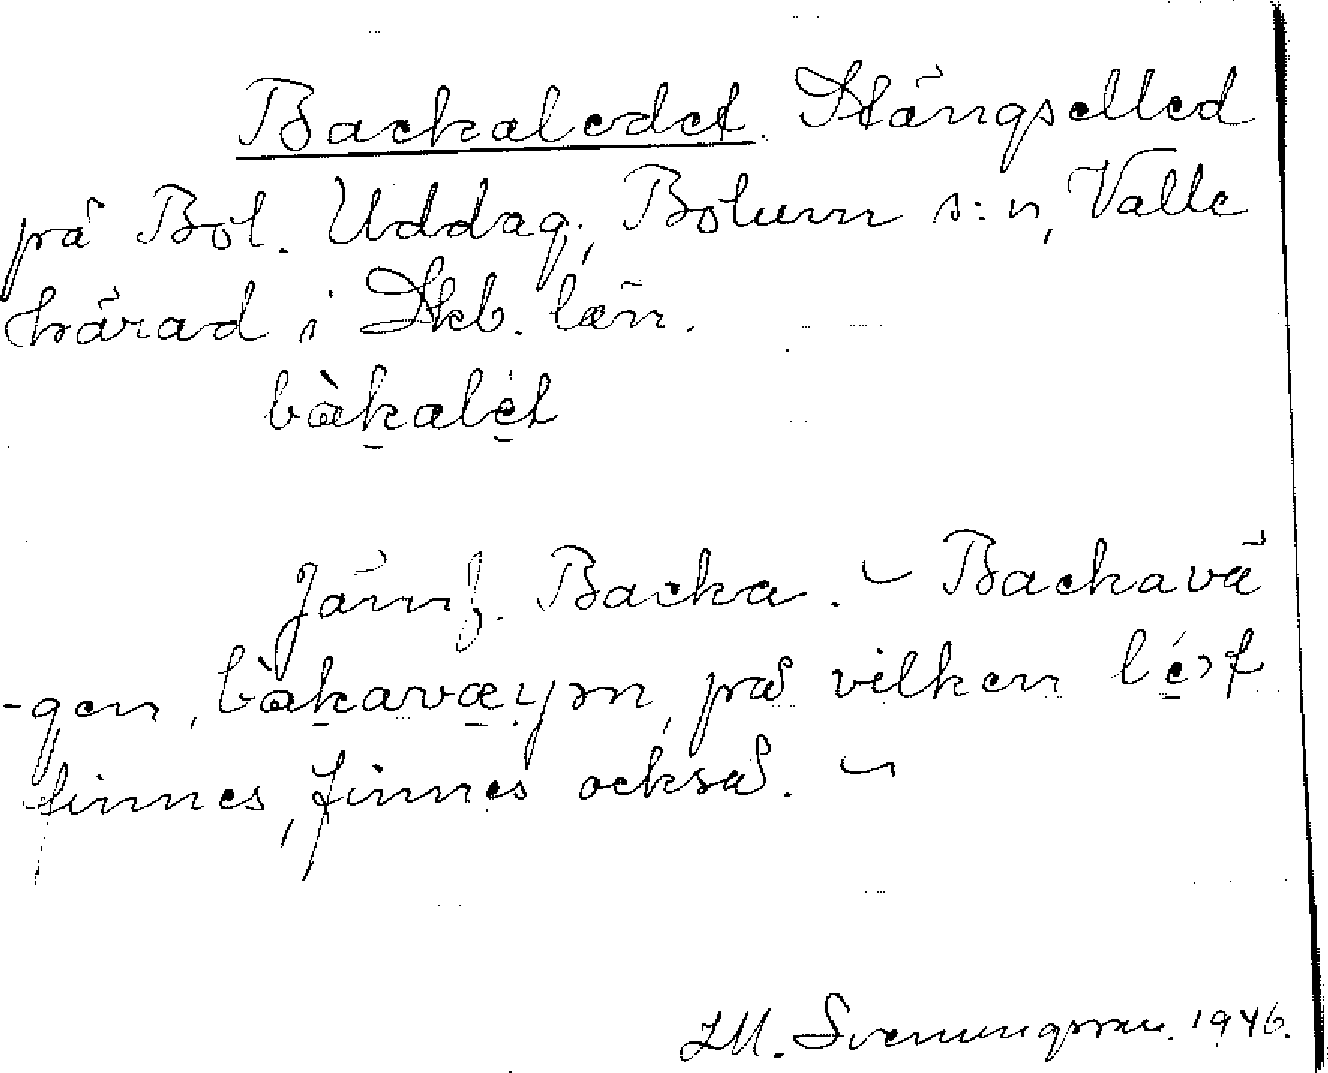 Backaledet. Stängselled
på Bol. Uddag., Bolum s:n, Valle
härad i Skb. län.
bàkalét
Jämf. Backa. ~ Backavä
-gen, bàkavæɣɘn, på vilken lét
finnes, finnes också. ~
LM. Svenungsson. 1946.